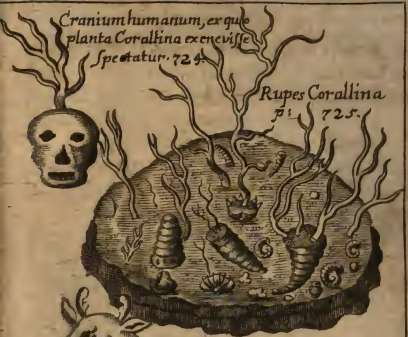 Cranium humanum, ex quo
planta Corallina exenevisse
spectatur. 724.
Rupes Corallina
p: 725.